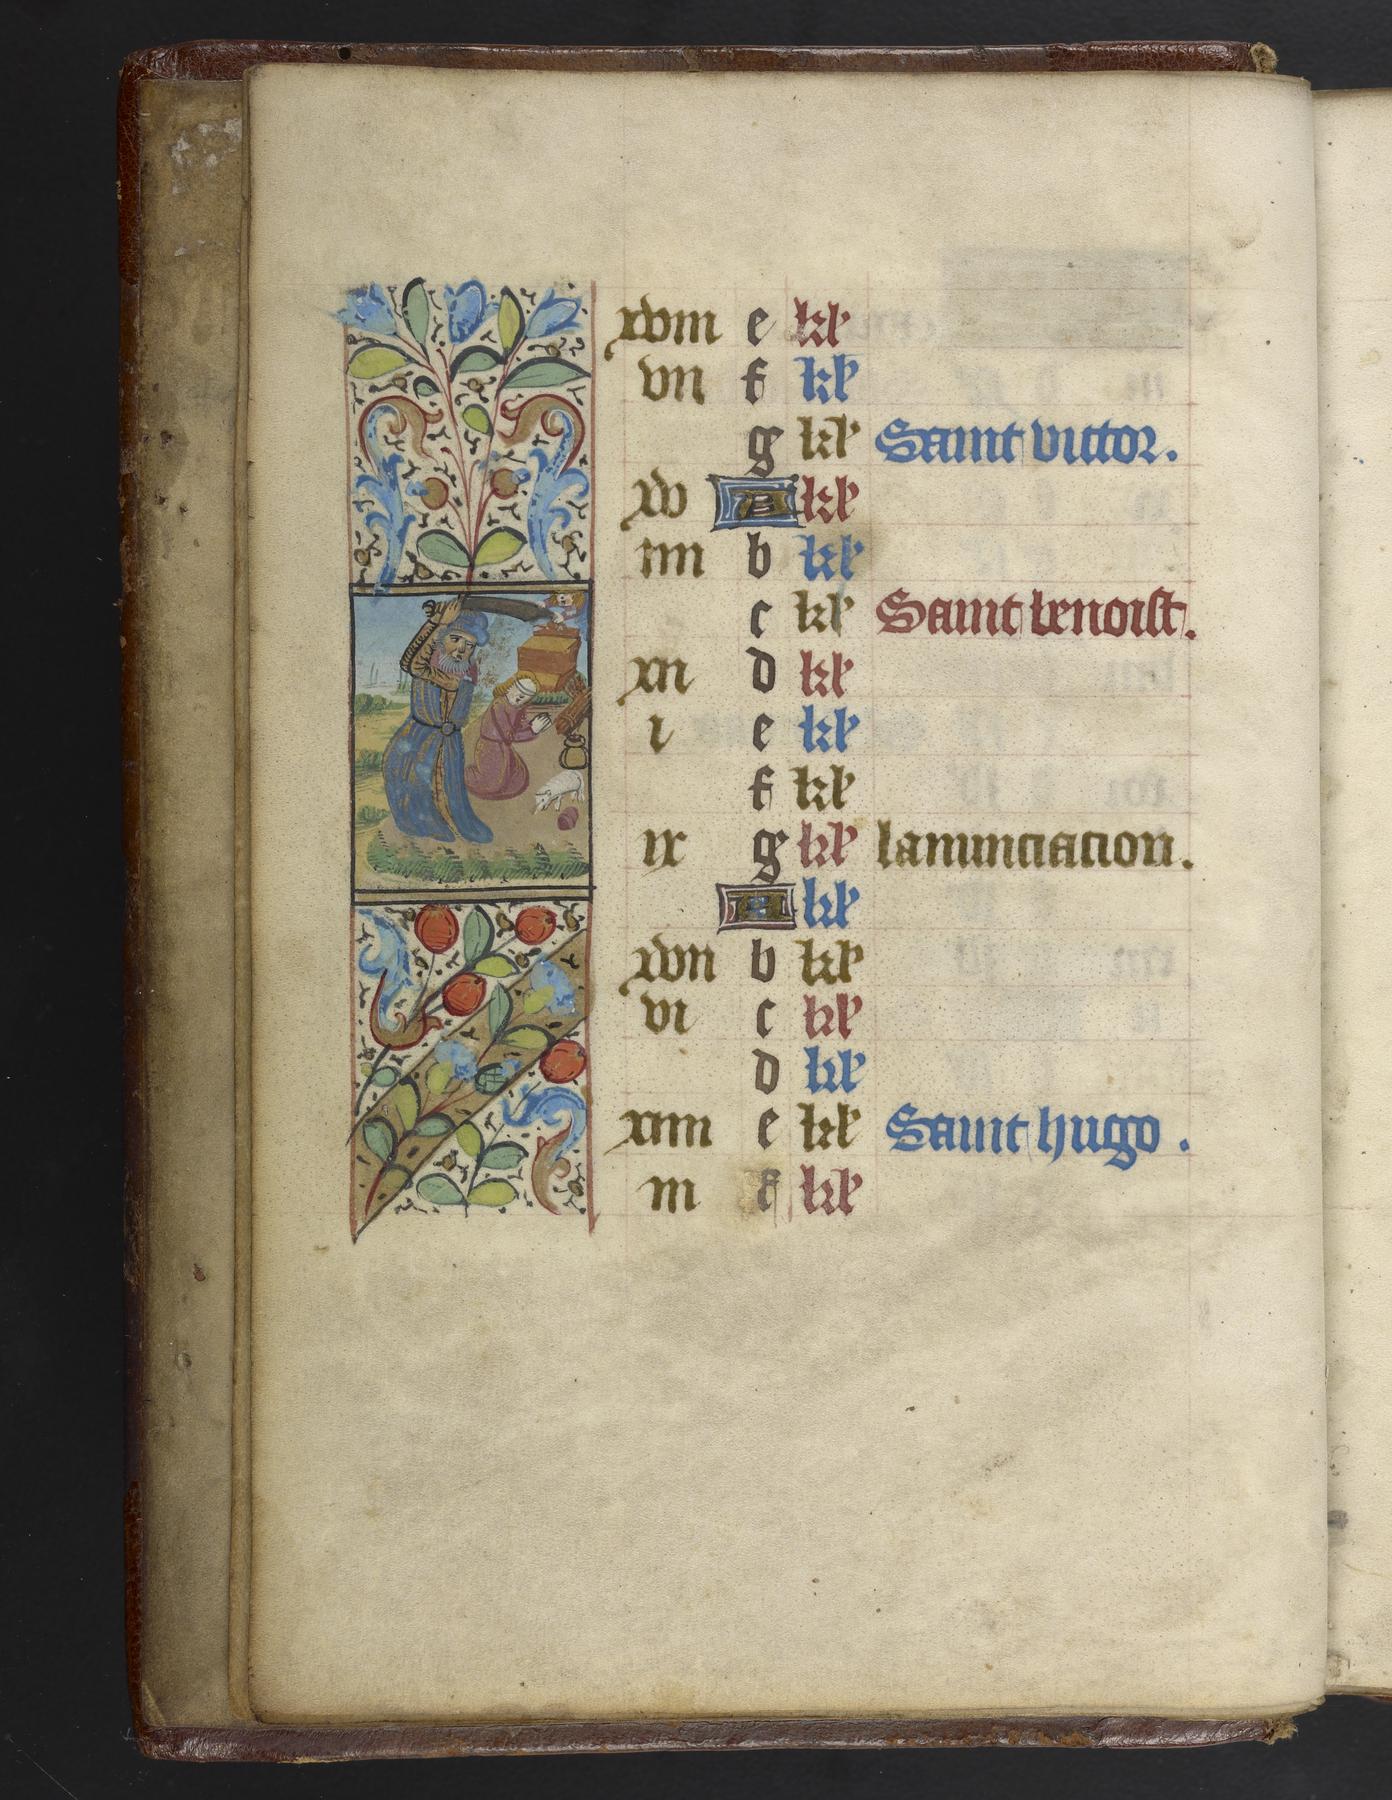 xviii e kł
vii f kł
g kł Saint victor.
xv A kł
iiii b kł
c kł Saint benoist.
xii d kł
i e kł
f kł
ix g kł lanunciacion.
A kł
xvii b kł
vi c kł
d kł
xiiii e kł Saint hugo .
iii f kł